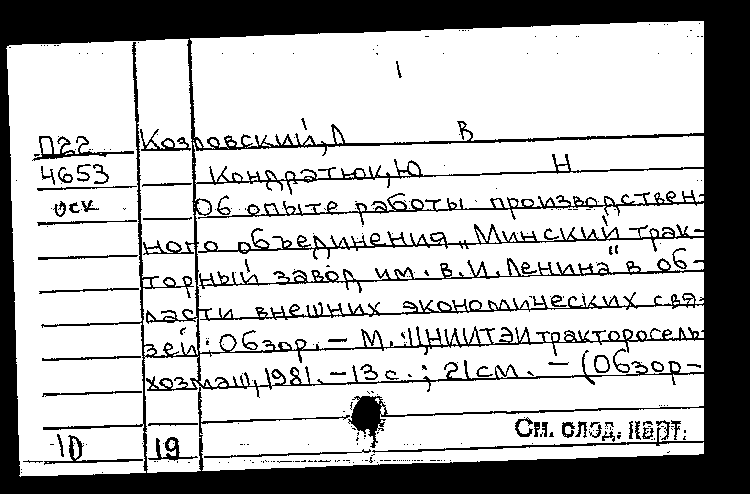 1
П22 Козловский, Л В
4653 Кондратюк, Ю Н
оск Об опыте работы производствен-
ного объединения „Минский трак-
торный завод им. В.И. Ленина" в об-
ласти внешних экономических свя-
зей: Обзор. — М.: ЦНИИТЭИтракторосель-
хозмаш, 1981. — 13 с.; 21 см. — (Обзор-
10 19 См. след. карт.